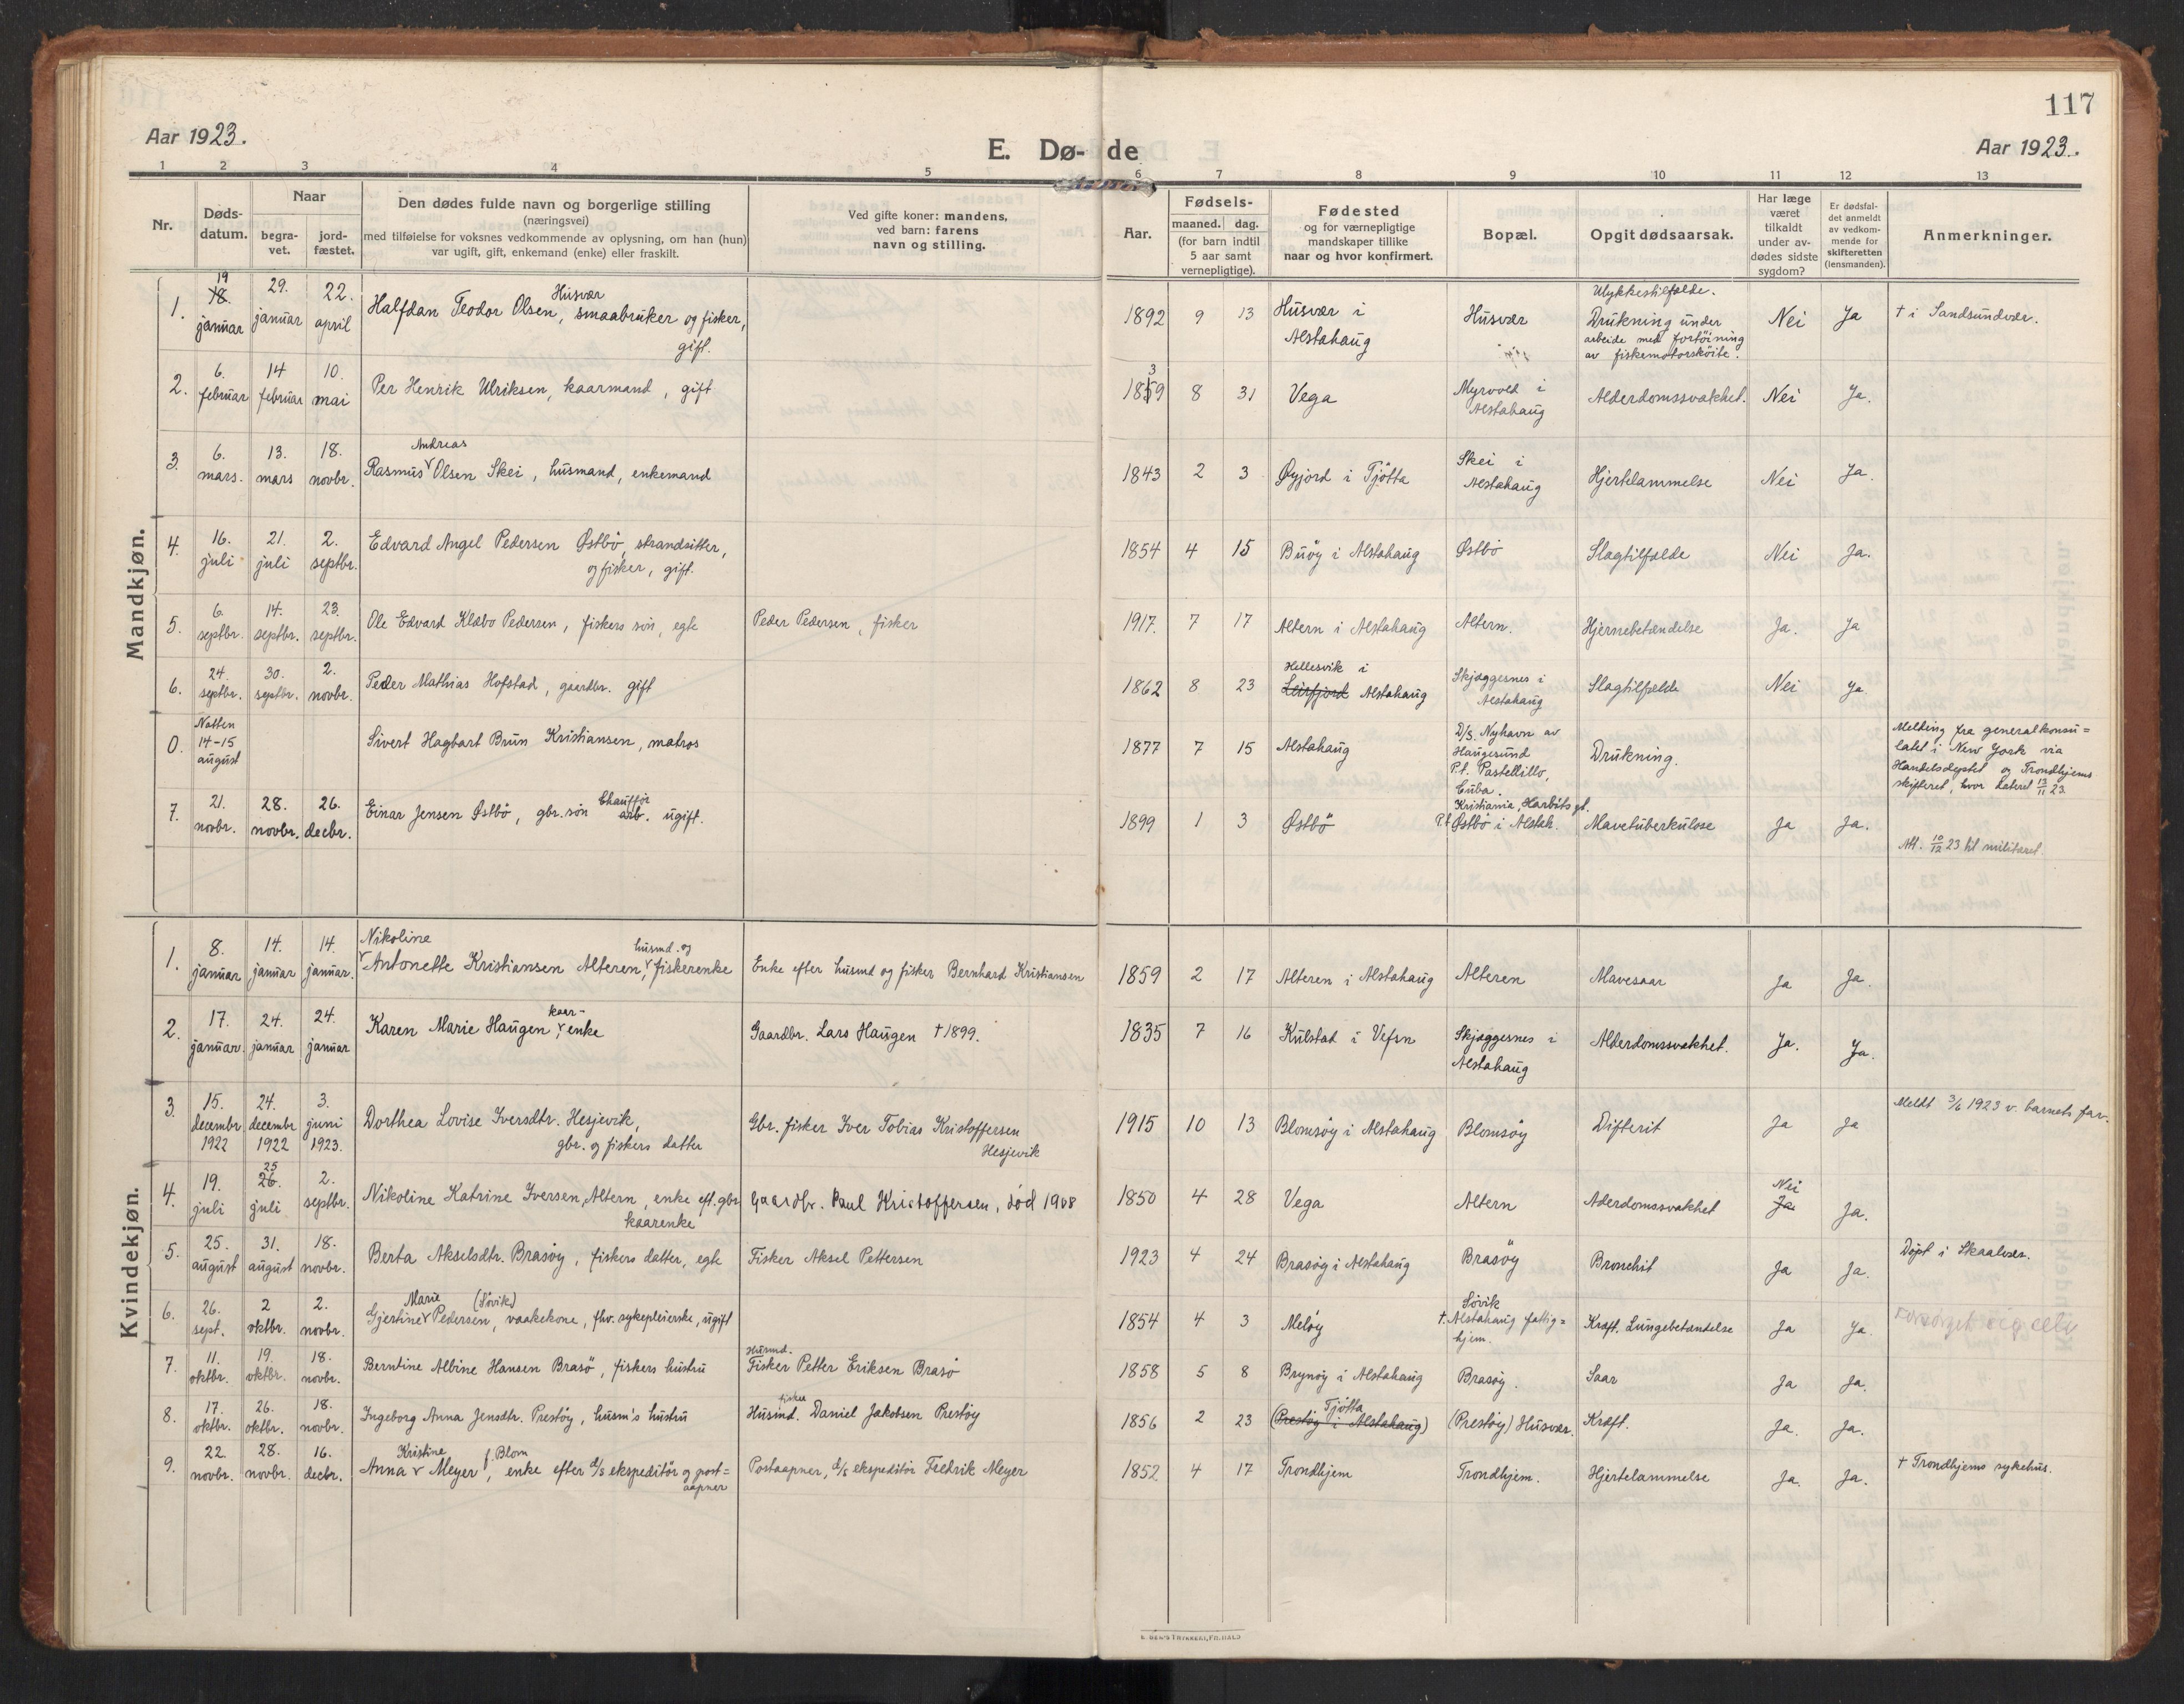 117
Aar 1923.
E. Dø-de
Aar 1923.
1 2 3 4 5 6 7 8 9 10 11 12 13
Nr.
Døds-
datum.
Naar
begra-
vet.
jord-
fæstet.
Den dødes fulde navn og borgerlige stilling
(næringsvei)
med tilføielse for voksnes vedkommende av oplysning, om han (hun)
var ugift, gift, enkemand (enke) eller fraskilt.
Ved gifte koner: mandens,
ved barn: farens
navn og stilling.
Aar.
Fødsels-
maaned. dag.
(for barn indtil
5 aar samt
vernepligtige).
Fødested
og for værnepligtige
mandskaper tillike
naar og hvor konfirmert.
Bopæl.
Opgit dødsaarsak.
Har læge
været
tilkaldt
under av-
dødes sidste
sygdom?
Er dødsfal-
det anmeldt
av vedkom-
mende for
skifteretten
(lensmanden).
Anmerkninger.
Mandkjøn.
1.
19
18.
januar
29.
januar
22.
april
Husvær
Halfdan Teodor Olsen, smaabruker og fisker,
gift.
1892 9 13
Husvær i
Alstahaug
Husvær
Ulykkestilfælde.
Drukning under
arbeide med fortöining
av fiskemotorsköite.
Nei Ja
† i Sandsundvær.
2.
6.
februar
14
februar
10.
mai
Per Henrik Ulriksen, kaarmand, gift
3
1859 8 31
Vega
Myrvold i
Alstahaug
Alderdomssvakhet. Nei Ja.
3.
6.
mars.
13.
mars
18.
novbr.
Andreas
Rasmus Olsen Skei, husmand, enkemand
1843 2 3
Øyjord i Tjötta
Skei i
Alstahaug
Hjertelammelse Nei Ja.
4.
16.
juli
21.
juli
2.
septbr.
Edvard Angel Pedersen Østbö, strandsitter,
og fisker, gift.
1854 4 15 Buöy i Alstahaug Østbö Slagtilfælde Nei Ja.
5.
6.
septbr.
14.
septbr.
23.
septbr.
Ole Edvard Klæbo Pedersen, fiskers sön, egte
Peder Pedersen, fisker
1917. 7 17 Altern i Alstahaug Altern. Hjernebetændelse Ja. Ja
6.
24.
septbr.
30.
septbr.
2.
novbr.
Peder Mathias Hofstad, gaardbr. gift
1862 8 23
Hellesvik i
Leirfjord Alstahaug
Skjæggesnes i
Alstahaug
Slagtilfælde Nei Ja
0.
Natten
14-15
august
Sivert Hagbart Brun Kristiansen, matros
1877 7 15 Alstahaug
D/s. Nyhavn av
Haugesund
P.t. Pastellillo,
Cuba.
Drukning.
Melding fra generalkonsu=
latet i New York via
Handelsdeptet og Trondhjems
skifteret, hvor dateret 13/11 23.
7.
21.
novbr.
28.
novbr.
26.
decbr.
Chaufför
Einar Jensen Østbö, gbr. sön arb. ugift.
1899 1 3 Østbö
Kristiania, Harbitz gt.
P.t Østbö i Alstah.
Mavetuberkulose Ja Ja.
Att. 10/12 23 til militæret.
Kvindekjøn.
1.
8.
januar
14.
januar
14.
januar.
Nikoline
husmd. og
Antonette Kristiansen Alteren, fiskerenke
Enke efter husmd og fisker Bernhard Kristiansen
1859 2 17 Alteren i Alstahaug Alteren Mavesaar Ja Ja.
2.
17.
januar.
24.
januar
24.
januar
kaar-
Karen Marie Haugen, enke
Gaardbr. Lars Haugen † 1899.
1835 7 16 Kulstad i Vefsn
Skjæggesnes i
Alstahaug
Alderdomssvakhet. Ja. Ja.
3.
15.
decembr
1922
24.
decembr
1922
3.
juni
1923.
Dorthea Lovise Iversdtr. Hesjevik,
gbr. og fiskers datter
Gbr. fisker Iver Tobias Kristoffersen
Hesjevik
1915 10 13 Blomsöy i Alstahaug Blomsöy Difterit Ja Ja
Meldt 3/6 1923 v. barnets far.
4.
19.
juli
25
26.
juli
2.
septbr.
Nikoline Katrine Iversen, Altern, enke eft. gbr
kaarenke
Gaardbr. Paul Kristoffersen, död 1908
1850 4 28 Vega Altern Aderdomssvakhet
Nei
Ja
Ja.
5.
25.
august
31.
august
18.
novbr.
Berta Akselsdtr. Brasöy, fiskers datter, egte
Fisker Aksel Pettersen
1923 4 24 Brasöy i Alstahaug Brasöy Bronchit Ja Ja.
Döpt i Skaalvær.
6.
26.
sept.
2
oktbr.
2.
novbr.
Marie (Sövik)
Gjertine Pedersen, vaakekone, fhv. sykepleierske, ugift
1854 4 3 Melöy
Sövik
†. Alstahaug fattig=
hjem.
Kræft. Lungebetændelse Ja Ja.
Forsörget sig selv
7.
11.
oktbr.
19.
oktbr.
18.
novbr.
Berntine Albine Hansen Brasö, fiskers hustru
Husmd.
Fisker Petter Eriksen Brasö
1858 5 8 Brynöy i Alstahaug Brasöy. Saar Ja Ja.
8.
17.
oktbr.
26.
oktbr.
18.
novbr.
Ingeborg Anna Jensdtr. Prestöy, husm's hustru
fisker
Husmd. Daniel Jakobsen Prestöy
1856 2 23
Tjötta
(Prestöy i Alstahaug)
(Prestöy) Husvær. Kræft. Ja. Ja.
9.
22.
novbr.
28.
novbr.
16.
decbr.
Kristine f. Blom
Anna Meyer, enke efter d/s ekspeditör og post=
aapner
Postaapner, d/s ekspeditör Fredrik Meyer
1852 4 17 Trondhjem Trondhjem. Hjertelammelse Ja. Ja.
† Trondhjems sykehus.